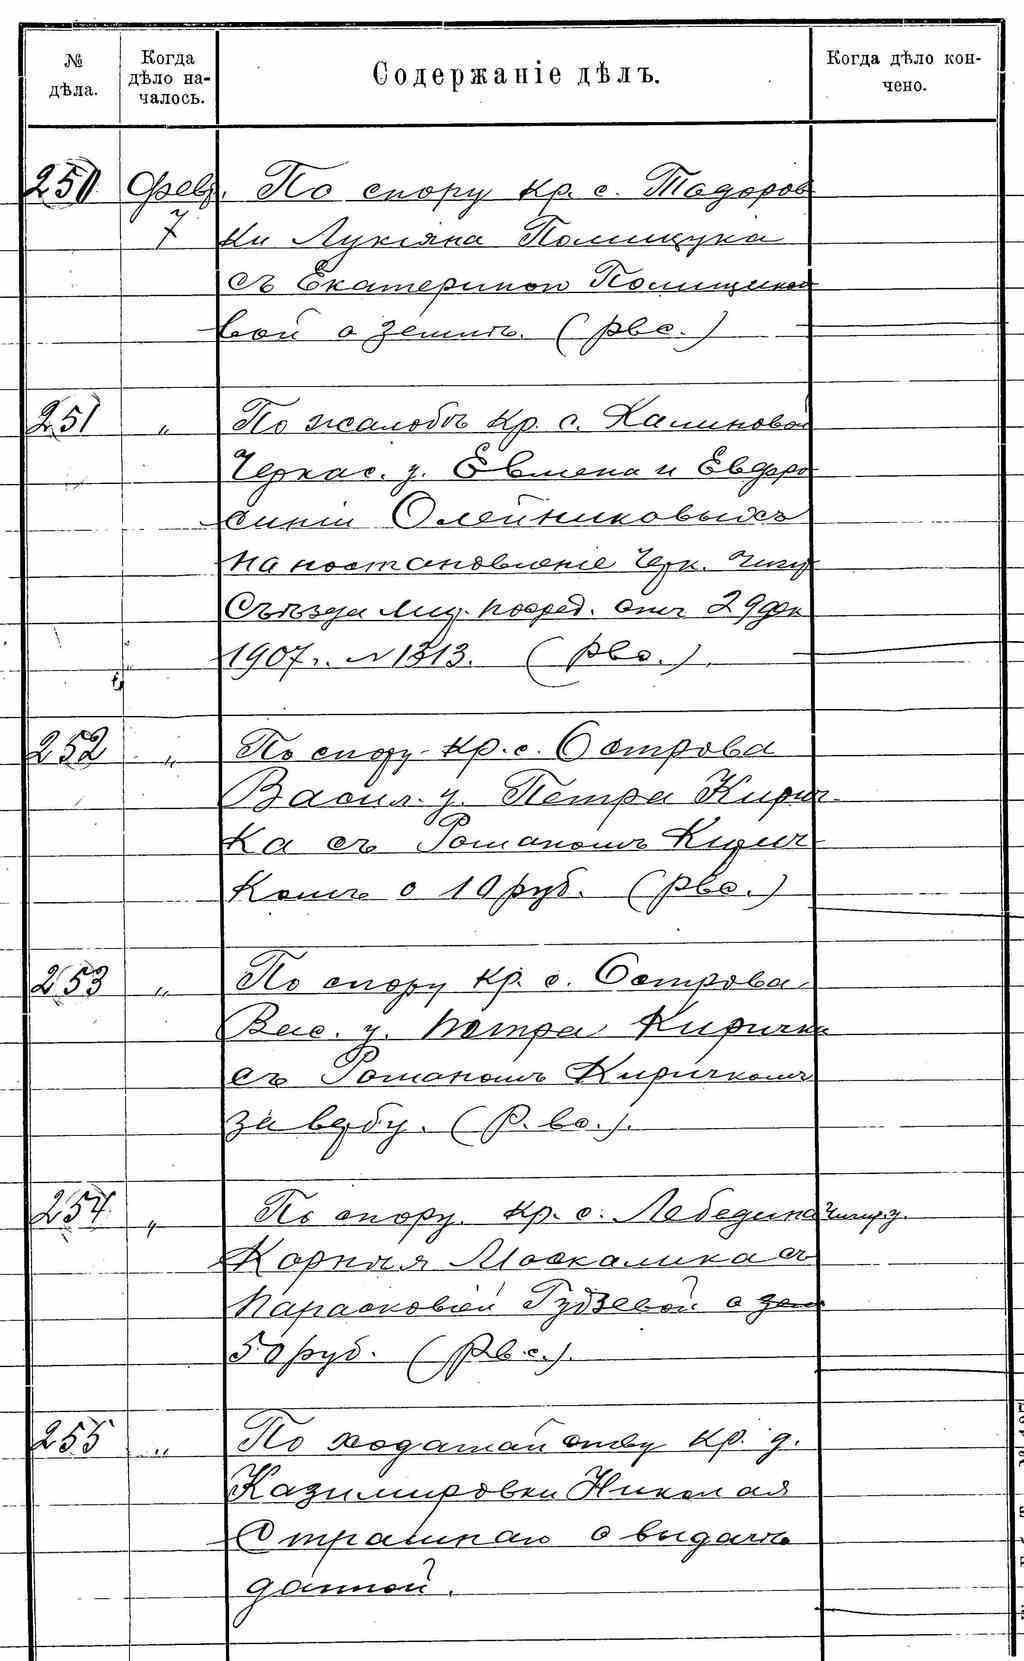 № дѣла. Когда дѣло началось. Содержаніе дѣлъ. Когда дѣло кончено.
250 Февр. По спору кр. с. Тодоров
7 ки Лукіяна Полищука
съ Екатериной Полищуко
вой о землѣ. (рвс.)
251 „ По жалобѣ кр. с. Калиновой
Черкас. у. Евмена и Евфро
синіи Олейниковыхъ
на постановленіе Черк. Чиг.
Съѣзда Мир. посред. отъ 29 дек
1907 г. № 1313. (рвс.).
252 „ По спору кр. с. Острова
Васил. у. Петра Кирич-
ка съ Романомъ Кирич-
комъ о 10 руб. (рвс.)
253 „ По спору кр. с. Острова,
Вас. у. Петра Киричка
съ Романомъ Киричкомъ
за вербу. (Р. вс.).
254 „ По спору кр. с. Лебедина Чигир. у.
Корнѣя Москалика съ
Парасковіей Гудзевой о зем
50 руб. (Рвс.).
255 „ По ходатайству кр. д.
Казимировки Николая
Страшнаго о выдачѣ
данной.